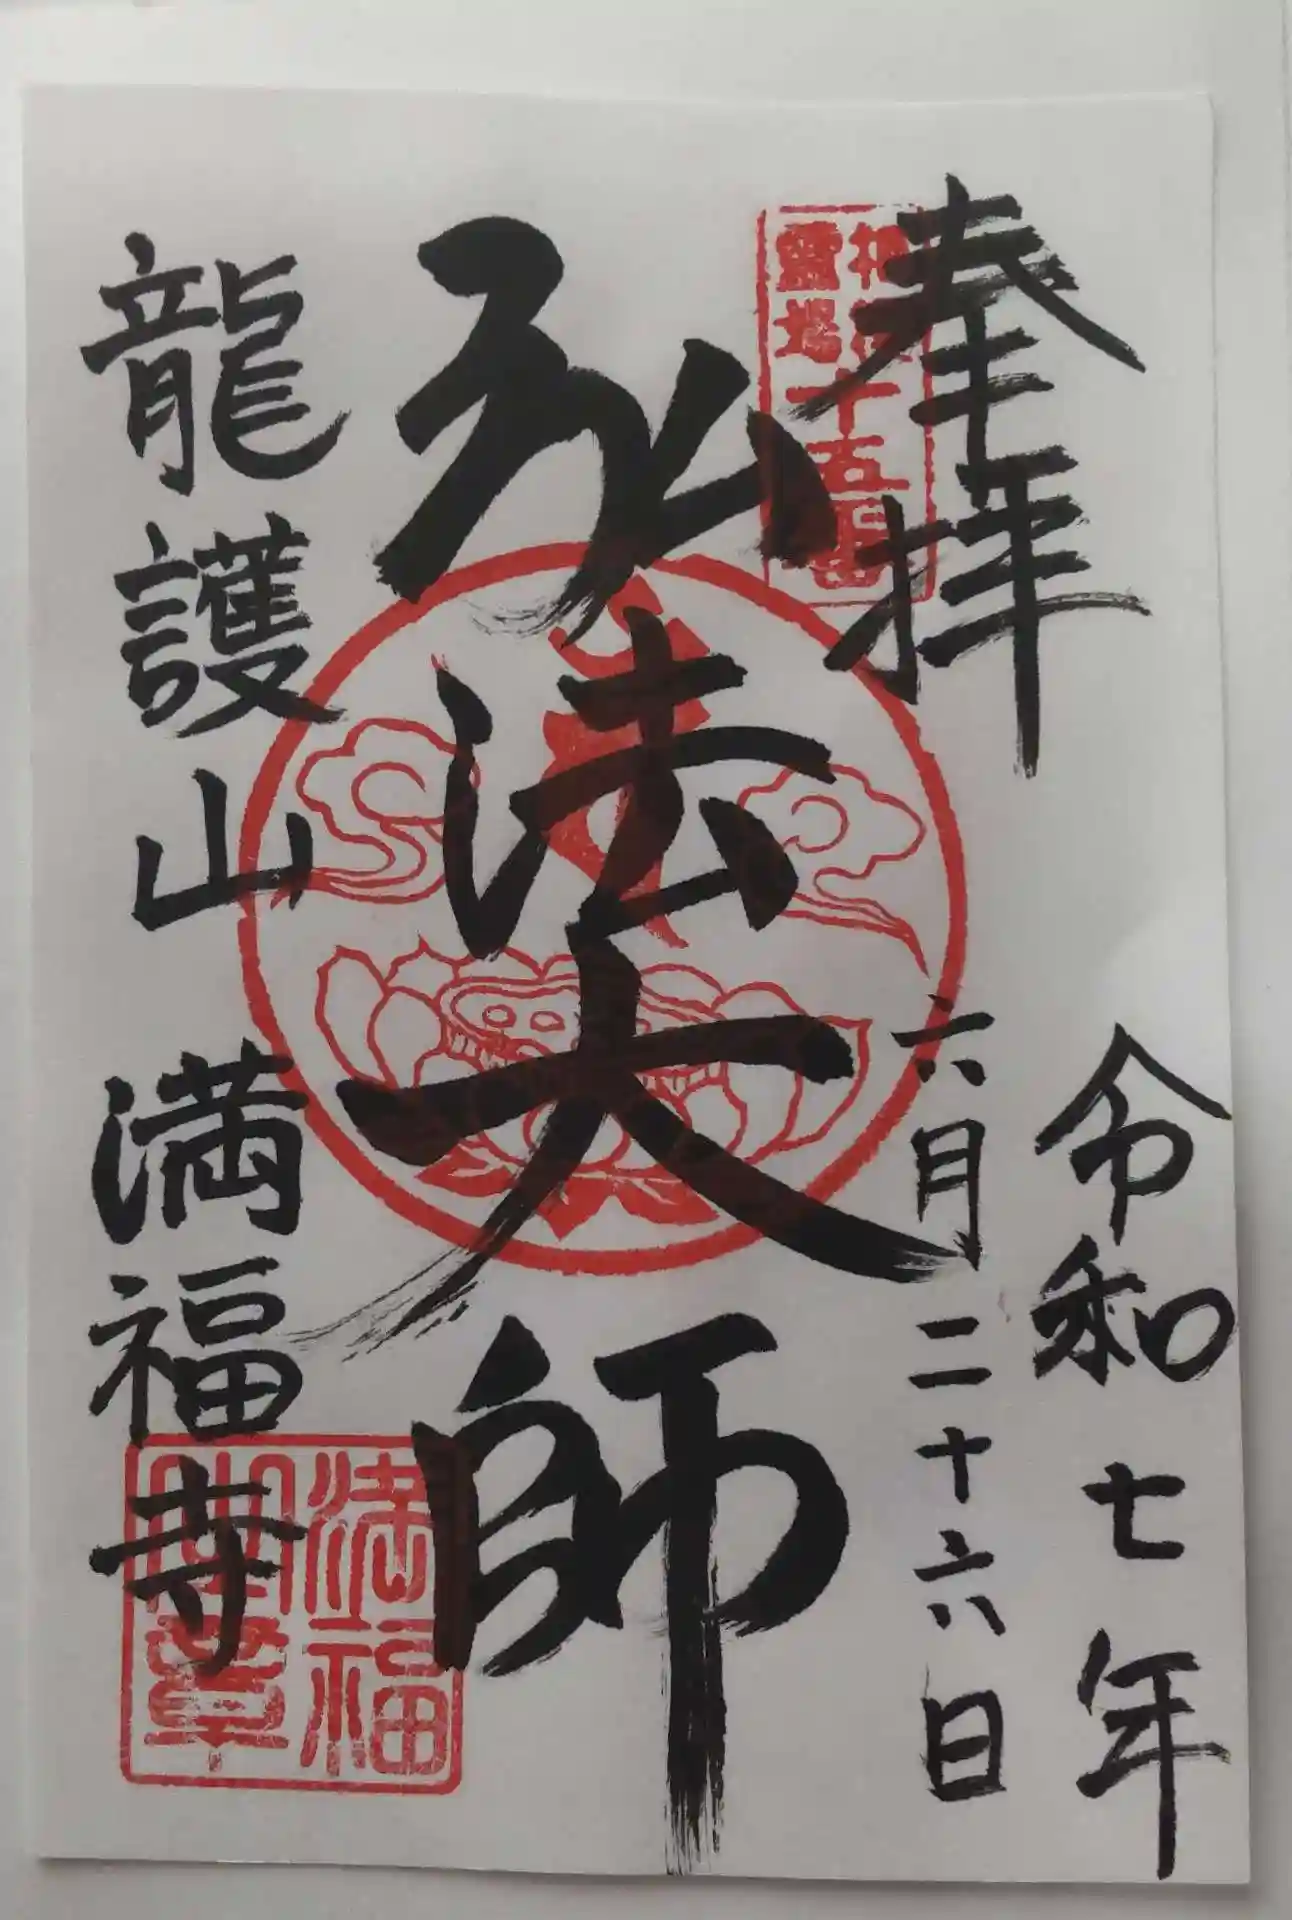 奉拝
令和七年
六月二十六日
霊場十五番
弘法大師
龍護山 満福寺
満福